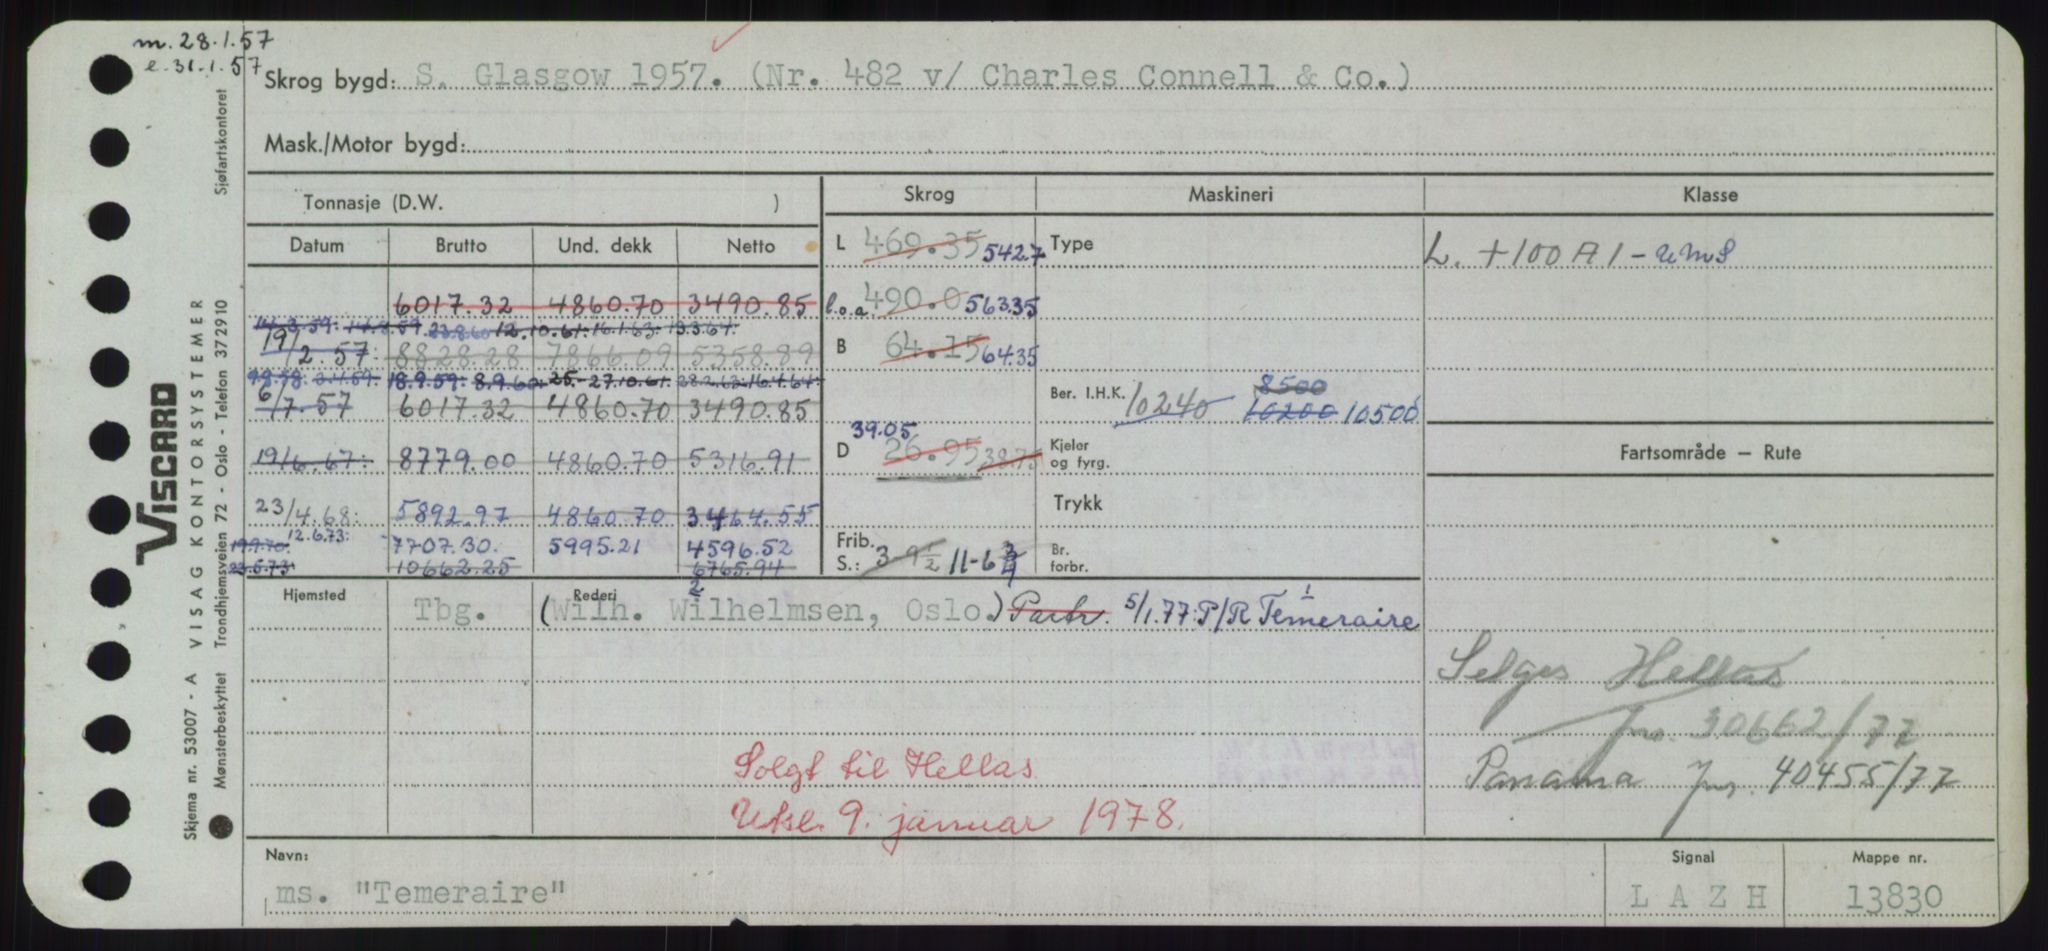 m. 28.1.57
e. 31.1.57
Skrog bygd: S. Glasgow 1957. (Nr. 482 v/ Charles Connell & Co.)
Mask./Motor bygd:
Tonnasje (D.W. ) Skrog Maskineri Klasse
Datum Brutto Und. dekk Netto
L 469.35 542.7 Type L. +100 A 1 - UMS
6017.32 4860.70 3490.85
l.o.a. 490.0 563.35
14.3.59. 14.8.59 23.8.60 12.10.61. 16.1.63. 13.3.64.
19/2.57. 8828.28 7866.09 5358.89
B 64.15 64.35
18.9.59. 8.9.60. 25.-27.10.61. 28.2.63. 16.4.64.
6/7.57 6017.32 4860.70 3490.85
Ber. I.H.K. 10240 8500 10200 10500
19/6.67. 8779.00 4860.70 5316.91
D 39.05 26.95 38.75
Kjeler og fyrg.
Fartsområde — Rute
23/4.68. 5892.97 4860.70 3464.55
Trykk
12.6.73. 7707.30. 5995.21 4596.52
19.9.70.
23.5.73. 10662.25 6765.94
Frib. S.: 3-9½ 11-6¾
Br. forbr.
Hjemsted Rederi
Tbg. (Wilh. Wilhelmsen, Oslo.) Partr. 5/1.77: P/R Temeraire
2 1
Selges Hellas
jnr. 30662/77
Solgt til Hellas
Panama jnr. 40455/77
Utsl. 9. januar 1978.
Navn: Signal Mappe nr.
ms. "Temeraire" L A Z H 13830
VISCARD
VISAG KONTORSYSTEMER
Skjema nr. 53007 - A
Mønsterbeskyttet Trondhjemsveien 72 - Oslo - Telefon 372910 Sjøfartskontoret